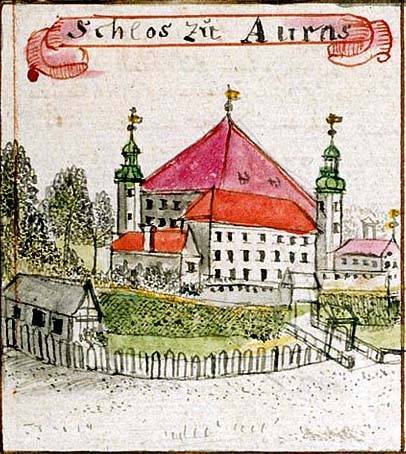 Schlos zu Auras